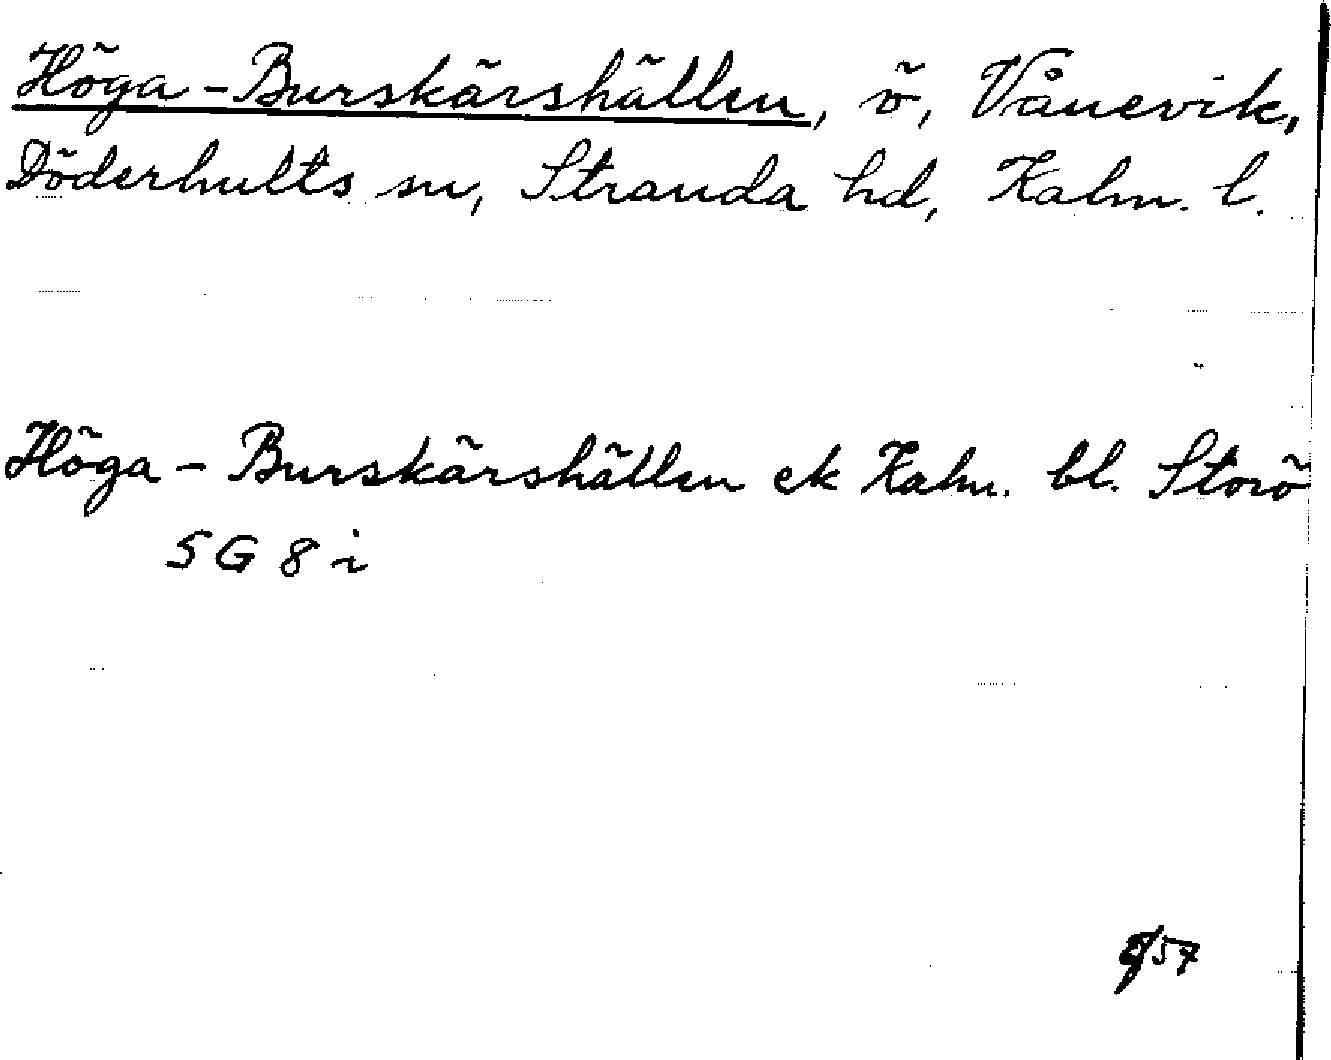 Höga-Burskärshällen, ö, Vånevik,
Döderhults sn, Stranda hd, Kalm. l.
Höga-Burskärshällen ek Kalm. bl. Storö
5G 8i
57